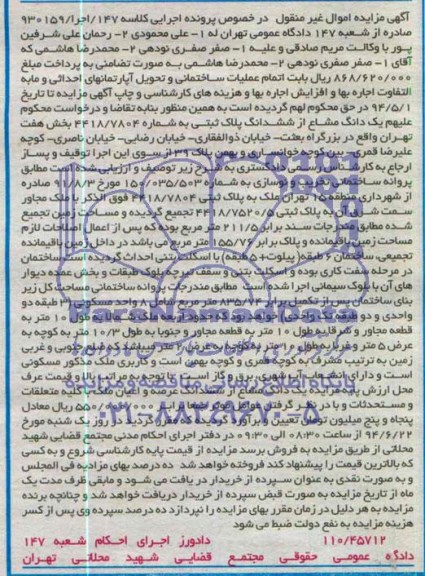 آگهی مزایده اموال غیر منقول در خصوص پرونده اجرایی کلاسه ۱۴۷/اجرا/۹۳۰۱۵۹
صادره از شعبه ۱۴۷ دادگاه عمومی تهران له ۱- علی محمودی ۲- رحمان علی شرفین
پور با وکالت مریم صادقی و علیه ۱- صفر صفری نودهی ۲- محمدرضا هاشمی که
آقای ۱- صفر صفری نودهی ۲- محمدرضا هاشمی به صورت تضامنی به پرداخت مبلغ
۸۶۸/۶۲۰/۰۰۰ ریال بابت اتمام عملیات ساختمانی و تحویل آپارتمانهای احداثی و مابه
التفاوت اجاره بها و افزایش اجاره بها و هزینه های کارشناسی و چاپ آگهی مزایده تا تاریخ
۹۴/۵/۱ در حق محکوم لهم گردیده است به همین منظور بنابه تقاضا و درخواست محکوم
علیهم یک دانگ مشاع از ششدانگ پلاک ثبتی به شماره ۴۴۱۸/۷۸۰۴ بخش هفت
تهران واقع در بزرگراه بعثت- خیابان ذوالفقاری- خیابان رضایی- خیابان ناصری- کوچه
علیرضا قمری- بین کوچه خوانساری و بهمن پلاک ۳۹ از سوی این اجرا توقیف و پس از
ارجاع به کارشناس رسمی دادگستری به شرح زیر توصیف و ارزیابی شده است مطابق
پروانه ساختمانی تخریب و نوسازی به شماره ۱۵۰۰۳۵/۵۰۳ مورخ ۹۱/۸/۳ صادره
از شهرداری منطقه ۱۵ تهران ملک به پلاک ثبتی ۴۴۱۸/۷۸۰۴ فوق الذکر با ملک مجاور
سمت شرق آن به پلاک ثبتی ۴۴۱۸/۷۵۲۰۵ تجمیع گردیده و مساحت زمین تجمیع
شده مطابق مندرجات سند برابر با ۲۱۱/۵ متر مربع بوده که پس از اعمال اصلاحات لازم
مساحت زمین باقیمانده و پلاک برابر ۱۵۵/۷۶ متر مربع می باشد در داخل زمین باقیمانده
تجمیعی، ساختمان ۶ طبقه (پیلوت+۵ طبقه) با اسکلت بتنی احداث گردیده است ساختمان
در مرحله سفت کاری بوده و اسکلت بتنی و سقف تیرچه بلوک طبقات و بخش عمده دیوار
های آن با بلوک سیمانی اجرا شده است مطابق مندرجات پروانه ساختمانی مساحت کل زیر
بنای ساختمان پس از تکمیل برابر ۸۳۵/۷۴ متر مربع شامل ۸ واحد مسکونی (۲ طبقه دو
واحدی و دو طبقه تک واحدی) خواهد بود که حدود اربعه ملک شمالا به طول ۱۰ متر به
قطعه مجاور و شرقا به طول ۱۰ متر به قطعه مجاور و جنوبا به طول ۱۰/۳ متر به کوچه به
عرض ۵ متر و غربا به طول ۱۶ متر به کوچه به عرض ۲ متر میباشد که ضلع جنوبی و غربی
زمین به ترتیب مشرف به کوچه قمری و کوچه بهمن است و کاربری ملک مذکور مسکونی
است و دارای انشعاب آب شهری، برق و گاز است. با توجه به مراتب بالا و قیمت عرف
محل ارزش پایه مزایده یک دانگ مشاع از ششدانگ عرصه و اعیان ملک با کلیه متعلقات
و مستحدثات و با در نظر گرفتن عوامل موثر جمعا به مبلغ ۵۵۰/۰۰۰/۰۰۰ ریال معادل
پنجاه و پنج میلیون تومان تعیین و برآورد گردیده که مقرر گردید در روز یک شنبه مورخ
۹۴/۶/۲۲ از ساعت ۰۸:۳۰ الی ۰۹:۳۰ در دفتر اجرای احکام مدنی مجتمع قضایی شهید
محلاتی از طریق مزایده به فروش برسد مزایده از قیمت پایه کارشناسی شروع و به کسی
که بالاترین قیمت را پیشنهاد کند فروخته خواهد شد ده درصد بهای مزایده فی المجلس
و به صورت نقدی به عنوان سپرده از خریدار در یافت می شود و مابقی ظرف مدت یک
ماه از تاریخ مزایده به صورت قبض سپرده از خریدار دریافت خواهد شد و چنانچه برنده
مزایده به هر دلیل در زمان مقرر بهای مزایده را نپردازد ده درصد سپرده وی پس از کسر
هزینه مزایده به نفع دولت ضبط می شود
۱۱۰/۴۵۷۱۲ دادورز اجرای احکام شعبه ۱۴۷
دادگاه عمومی حقوقی مجتمع قضایی شهید محلاتی تهران
پایگاه اطلاع رسانی مناقصه و مزایده
۰۲۱-۸۸۳۴۹۶۷۰-۵